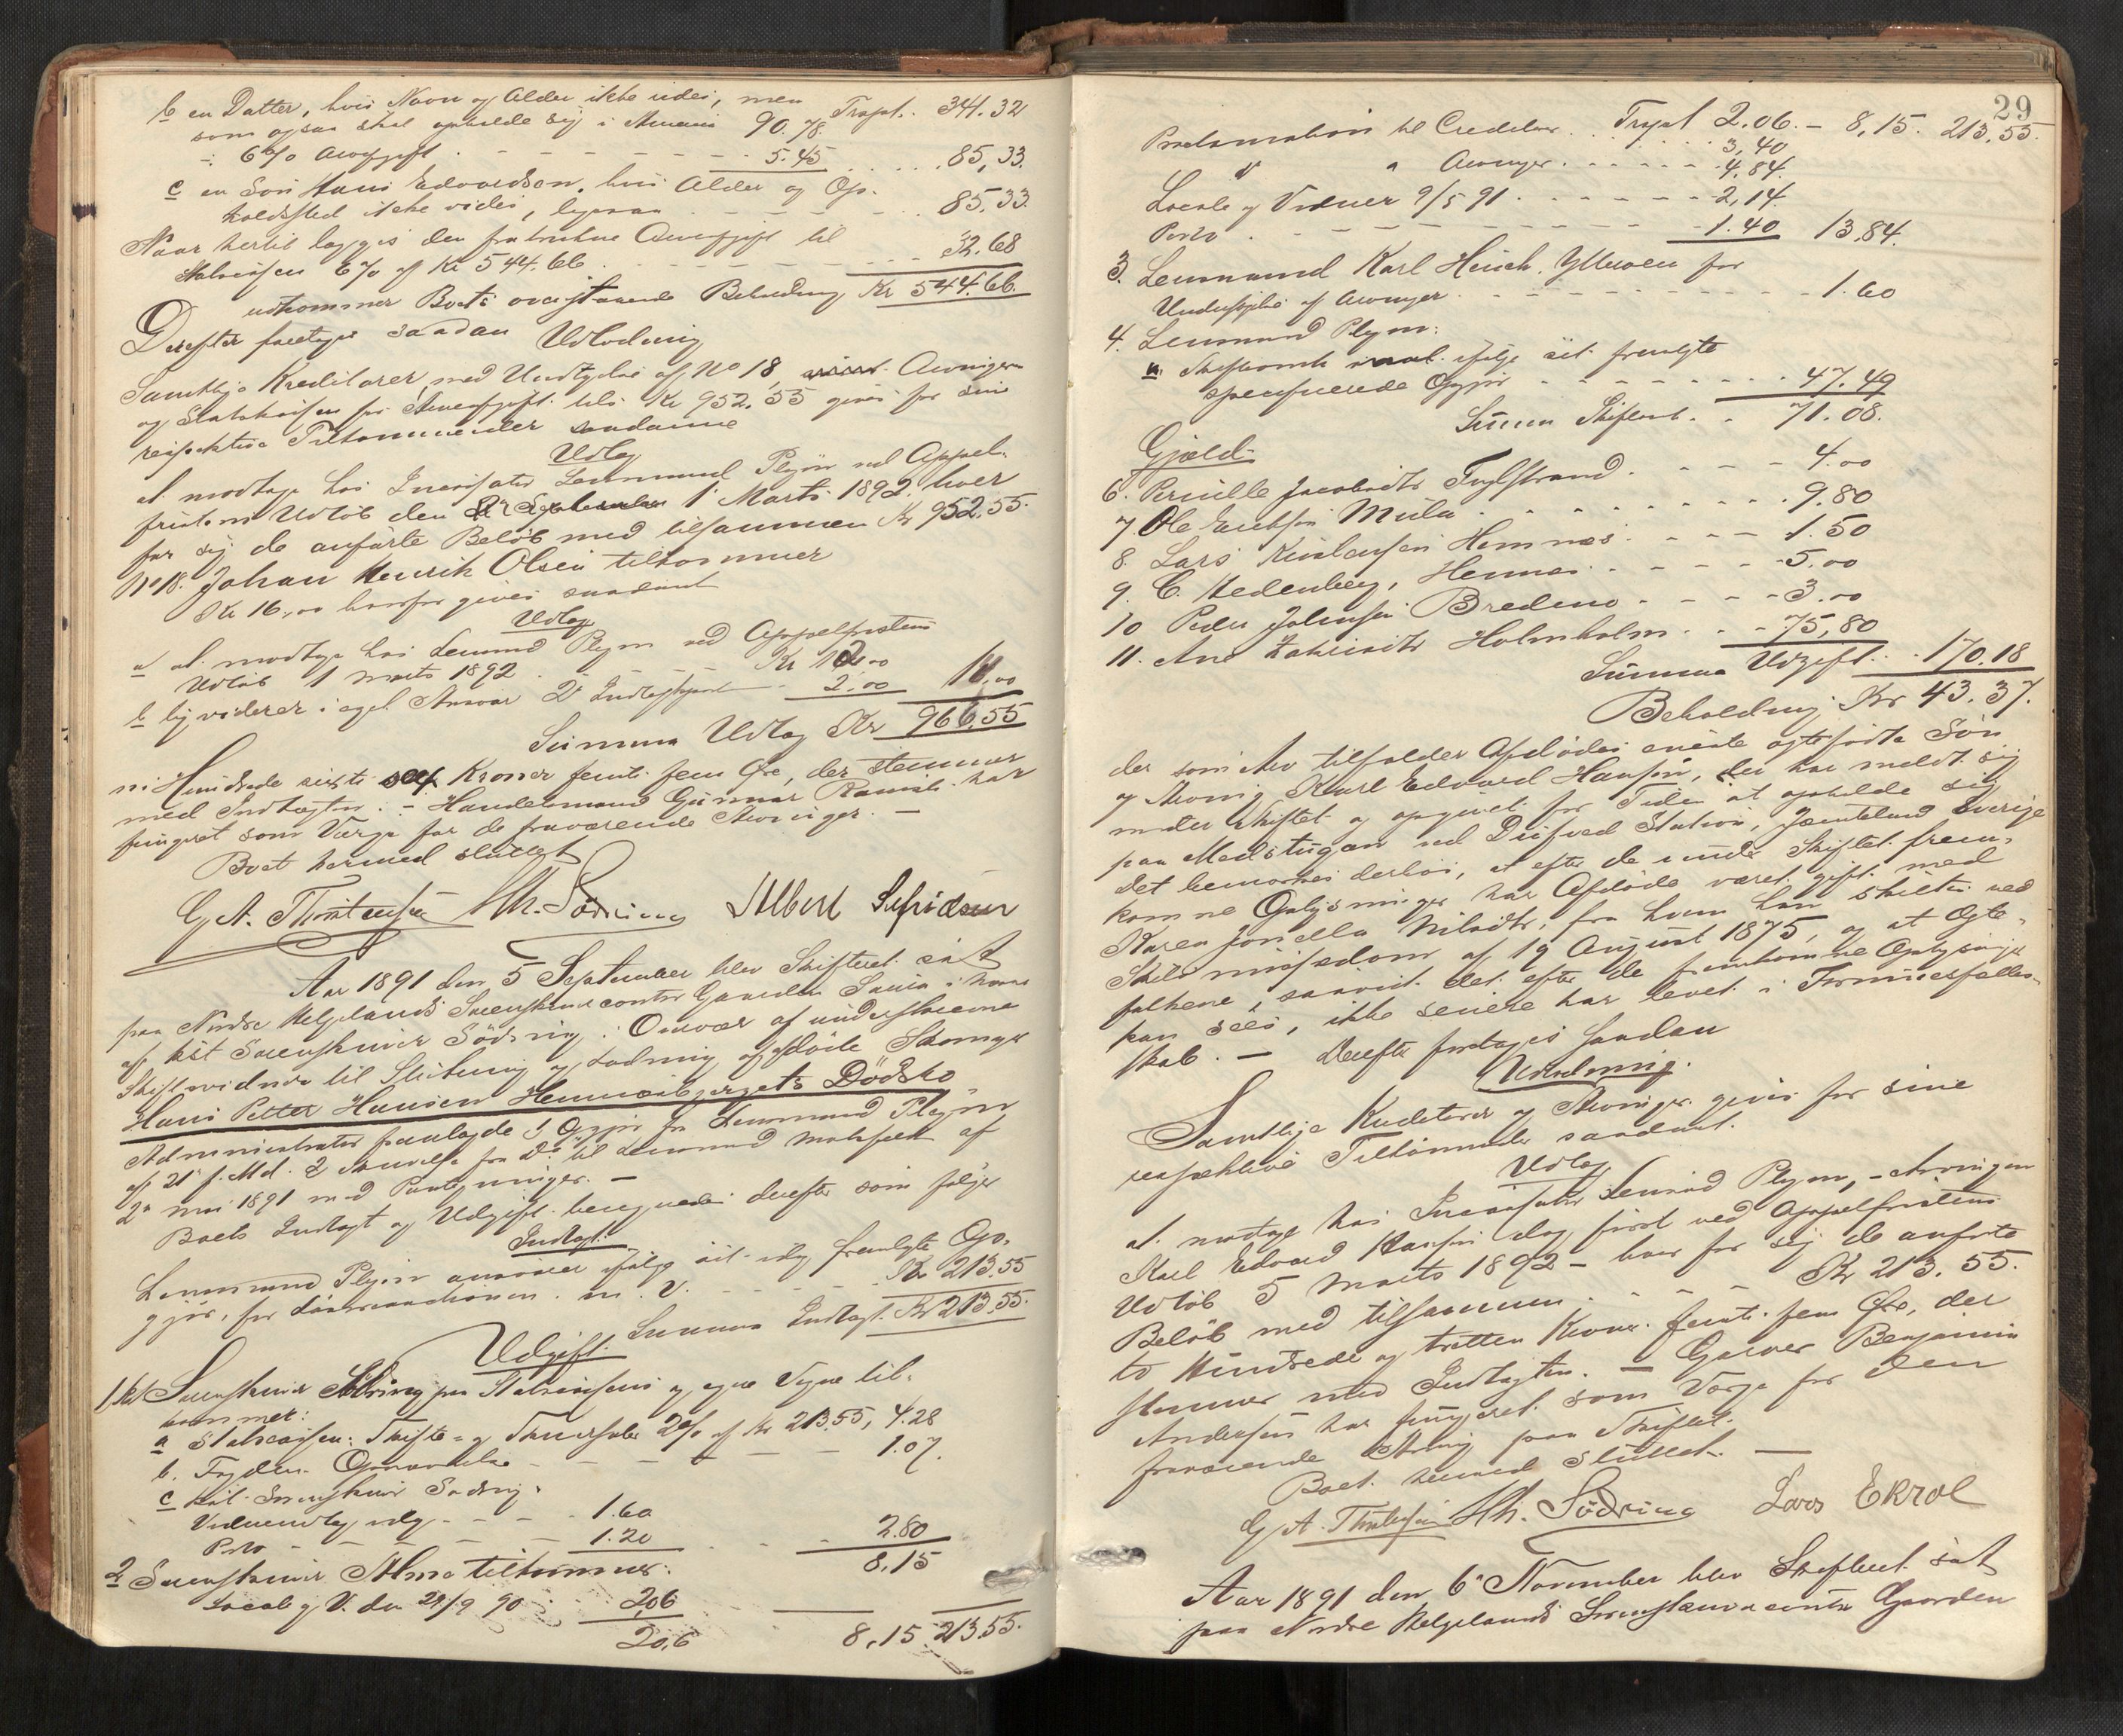 b en Datter, hvis Navn og Alder ikke vides, men Trspt. 341.32
som ogsaa skal opholde sig i Amerika 90.78.
÷ 6% Arvefgift 5.45 85,33.
c en Søn Hans Edvardsen, hvis Alder og Op-
holdssted ikke vides, ligesaa 85.33.
Naar hertil lægges den fratrukne Arveafgift til
Statskassen 6% af Kr 544.66. 32.68
udkommer Boets ovenstaaende Beholdning Kr 544.66.
Derefter foretages saadan
Udlodning
Samtlige Kreditorer, med Undtagelse af No 18, Arvingerne
og Statskassen for Arveafgift tils. Kr 952.55 gives for sine
respektive Tilkommender saadanne
Udlæg
at modtage hos Incassator Lensmand Plejm ved Appel-
fristens Udløb den 1 Marts 1892 hver
for sig de anførte Beløb med tilsammen Kr 952.55.
No 18. Johan Henrik Olsen tilkommer
Kr 16,00 hvorfor gives saadant
Udlæg
a at modtage hos Lensmd Plejm ved Appelfristens
Udløb 1 Marts 1892 Kr 12.00
b liqviderer i eget Ansvar 2.00 14.00
Summa Udlæg Kr 966.55
ni Hundrede sexti sex Kroner femti fem Øre, der stemmer
med Indtægten. – Handelsmand Gunnar Ranish har
fungeret som Værge for de fraværende Arvinger. –
Boet hermed sluttet
G. A. Thorstensen Hh. Södring Albert Sefridsen
Aar 1891 den 5 September blev Skifteret sat
paa Nordre Helgelands Sorenskrivercontor Gaarden i
af kst Sorenskriver Södring i Overvær af underskrevne
Skiftevidner til Slutning og Lodning af afdøde Skomager
Hans Petter Hansen Hemnesbjergets Dödsbo
Administrator fremlagde 1 Opgjør fra Lensmand Plejm
af 21 f. Md. 2 Skrivelse fra Do til Lensmand af
2 mai 1891 med Paategninger. –
Boets Indtægt og Udgift beregnedes derefter som følger
Indtægt:
Lensmand Plejm ansvarer ifølge sit idag fremlagte Op-
gjør, for Løsøreauctionen m. V. Kr 213.55
Summa Indtægt Kr 213.55.
Udgift:
1, kst Sorenskriver Södring paa Statskassens og egne Vegne til-
kommer:
a Statskassen: Skifte- og 2% af Kr 213.55, 4.28
b. 1.07.
c kst. Sorenskriver Södring:
1.60
Porto 1.20 2.80
8.15
2 Sorenskriver tilkommer:
Locale og V. den 29/9 90 2.06
20,6 8,15 213.55.
29
Proclamation til Creditorer Trspt 2.06 – 8,15. 213,55.
3,40
" " Arvinger 4.84.
Locale og Vidner 9/5 91 2,14.
Porto 1.40 13,84.
3. Lensmand Karl Yttersen for
af Arvinger 1.60
4. Lensmand Plejm:
a. ifølge sit fremlagte
specificerede Opgjør 47.49
Summa Skifteomk. 71.08.
Gjæld:
6. Pernille Jacobsdtr 4.00
7. Ole Erichsen Mula 9.80
8. Lars Hemnæs 1.50
9. C. Hedenberg, Hemnes 5.00
10 Peder Johnsen Bredmo 3.00
11. Ane Zakrisdtr Holmholm 75,80
Summa Udgift 170.18
Beholdning Kr 43.37.
der som Arv tilfalder Afdødes eneste ægtefødte Søn
og Arving Karl Edvard Hansen, der har meldt sig
under Skiftet og opgivet for Tiden at opholde sig
paa Medstugan ved Dufved Station, Jæmtland Sverige
Det bemærkes derhos, at efter de under Skiftet frem-
komne Oplysninger har Afdøde været gift med
Karen Jonella Nilsdtr, fra hvem han skiltes ved
Skilsmissedom af 19 August 1875, og at Ægte-
folkene, saavidt det efter de fremkomne Oplysninger
kan sees, ikke senere har levet i Formuesfælles-
skab. – Derefter foretages saadan
Udlodning.
Samtlige Kreditorer og Arvinger gives for sine
respektive Tilkommender saadant
Udlæg
at modtage hos Incassator Lensmd Plejm, – Arvingen
Karl Edvard Hansen dog først ved Appelfristens
Udløb 5 Marts 1892 – hver for sig de anførte
Beløb med tilsammen Kr 213.55.
to Hundrede og tretten Kroner femti fem Øre, der
stemmer med Indtægten. – Garver Benjamin
Andersen har fungeret som Værge for den
fraværende Arving paa Skiftet.
Boet hermed sluttet. –
G. A. Thorstensen Hh. Södring Lars Ekrol
Aar 1891 den 6 November blev Skifteret sat
paa Nordre Helgelands Sorenskrivercontor Gaarden